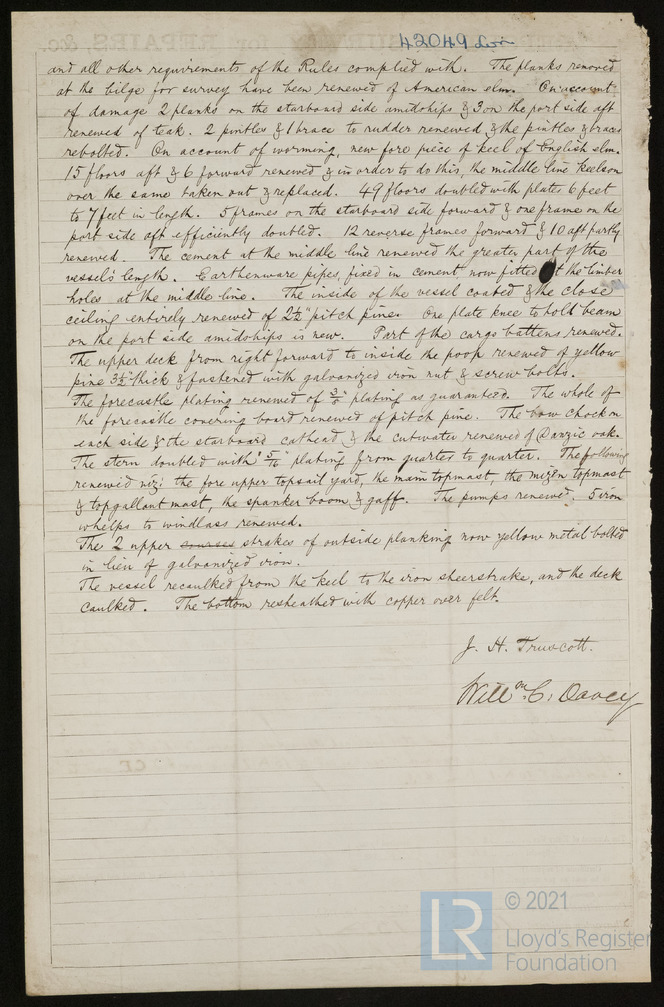 42049 Lon
and all other requirements of the Rules complied with. The planks removed
at the bilge for survey have been renewed of American elm. On account
of damage 2 planks on the starboard side amidships & 3 on the port side aft
renewed of teak. 2 pintles & 1 brace to rudder renewed & the pintles & braces
rebolted. On account of worming, new fore piece of keel of English elm.
15 floors aft & 6 forward renewed & in order to do this, the middle line keelson
over the same taken out & replaced. 49 floors doubled with plate 6 feet
to 7 feet in length. 5 frames on the starboard side forward & one frame on the
port side aft efficiently doubled. 12 reverse frames forward & 10 aft partly
renewed. The cement at the middle line renewed the greater part of the
vessel's length. Earthenware pipes, fixed in cement now fitted at the limber
holes at the middle line. The inside of the vessel coated & the close
ceiling entirely renewed of 2½" pitch pine. One plate knee to hold beam
on the port side amidships is new. Part of the cargo battens renewed.
The upper deck from right forward to inside the poop renewed of yellow
pine 3½" thick & fastened with galvanized iron nut & screw bolts.
The forecastle plating renewed of plating as guaranteed. The whole of
the forecastle covering board renewed of pitch pine. The bow chock on
each side & the starboard cathead & the cutwater renewed of Danzic oak.
The stern doubled with 5/16 plating from quarter to quarter. The following
renewed viz: the fore upper topsail yard, the main topmast, the mizen topmast
& topgallant mast, the spanker boom & gaff. The pumps renewed. 5 iron
whelps to windlass renewed.
The 2 upper courses strakes of outside planking now yellow metal bolted
in lieu of galvanized iron.
The vessel recaulked from the keel to the iron sheerstrake, and the deck
caulked. The bottom resheathed with copper over felt.
J. H. Truscott.
Willm C. Davey
© 2021
LR Lloyd's Register
Foundation